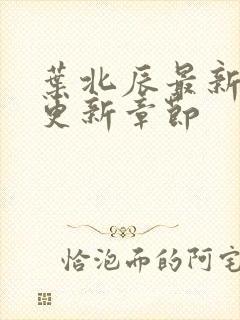 葉北辰最新
更新章節
恰泡而的阿宅